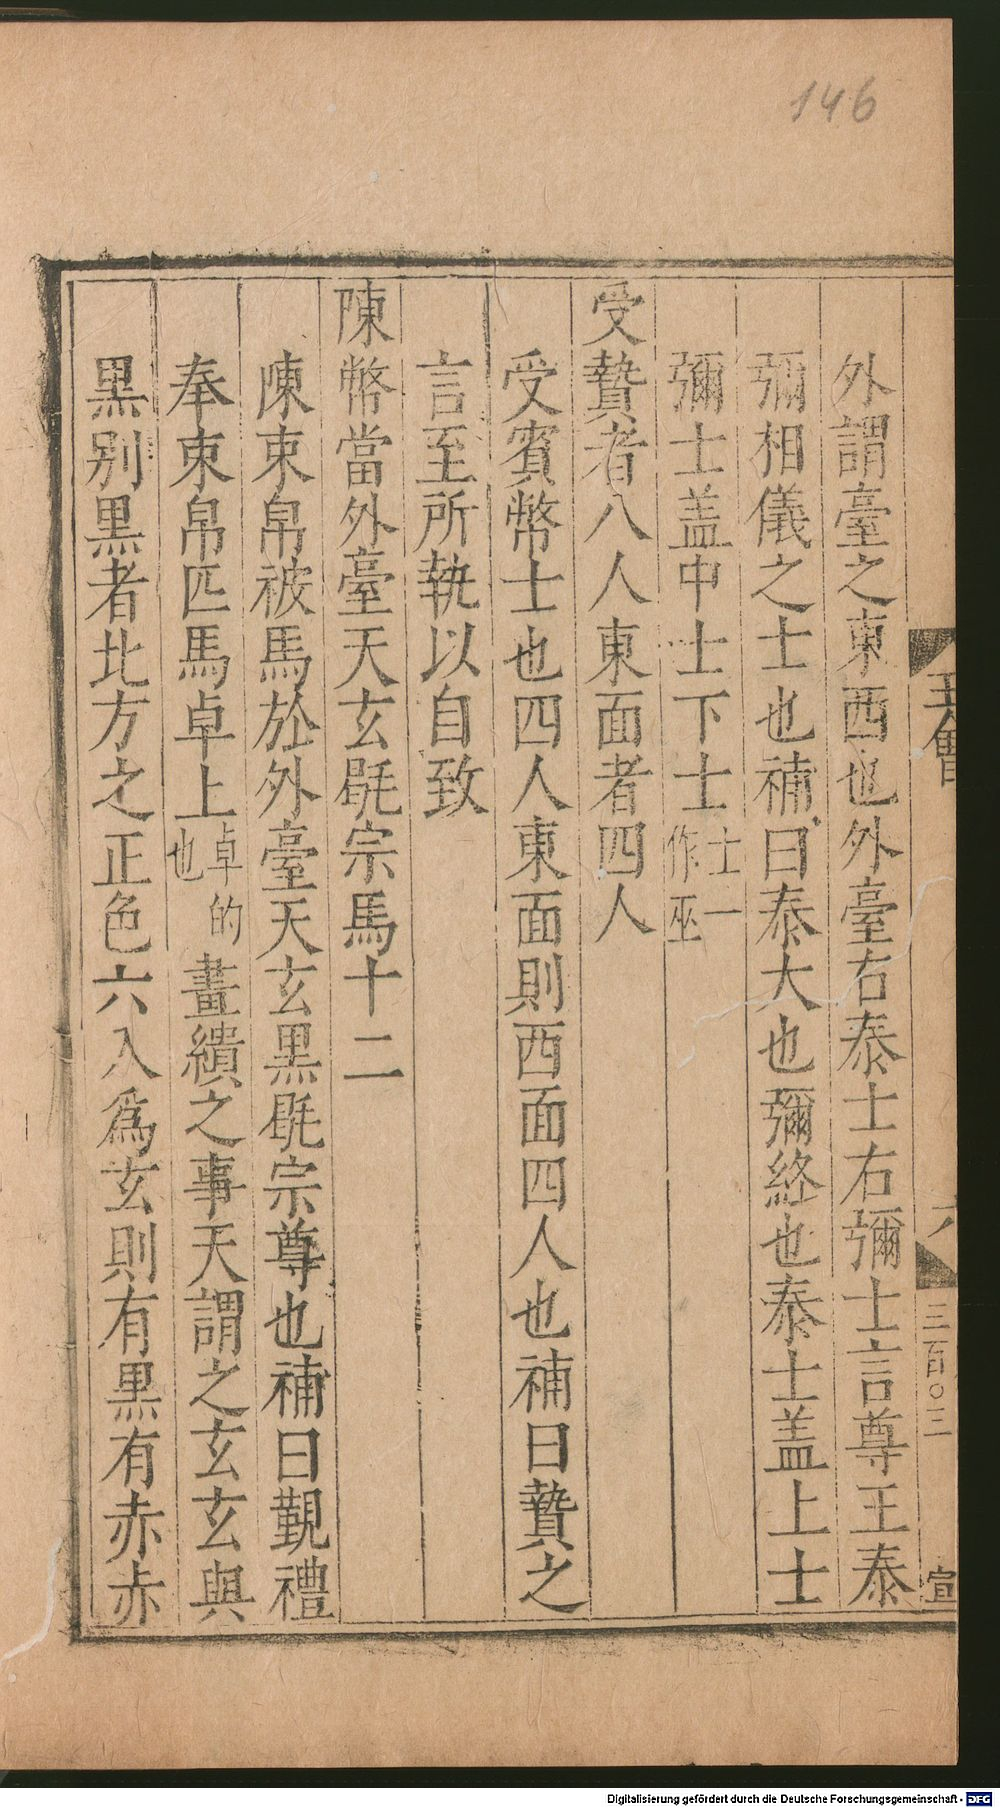 146
外謂臺之東西也外臺右泰士右彌士言尊王泰
彌相儀之士也補曰泰大也彌終也泰士盖上士
彌士盖中士下士士一作巫
受贄者八人東面者四人
受賓幣士也四人東面則西面四人也補曰贄之
言至所執以自致
陳幣當外臺天玄㲠宗馬十二
陳束帛被馬於外臺天玄黒㲠宗尊也補曰覲禮
奉束帛匹馬卓上卓的也畫繢之事天謂之玄玄與
黒别黒者北方之正色六入爲玄則有黒有赤赤
王會
六
三百〇三
宣
Digitalisierung gefördert durch die Deutsche Forschungsgemeinschaft - DFG